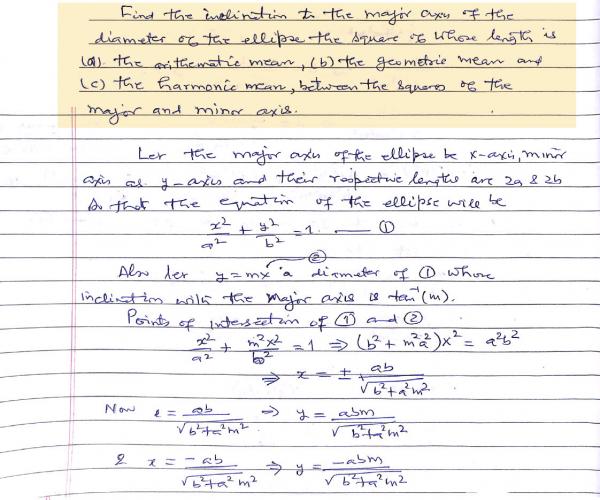 Find the inclination to the major axis of the
diameter of the ellipse the square of whose length is
(a) the arithematic mean, (b) the geometric mean and
(c) the harmonic mean, between the squares of the
major and minor axis.
Let the major axis of the ellipse be x-axis, minor
axis as y-axis and their respective lengths are 2a & 2b
so that the equation of the ellipse will be
x²/a² + y²/b² = 1 — ①
Also let y = mx — ② a diameter of ① whose
inclination with the major axis is tan⁻¹(m).
Points of intersection of ① and ②
x²/a² + m²x²/b² = 1 ⇒ (b² + m²a²)x² = a²b²
⇒ x = ± ab/√(b²+a²m²)
Now x = ab/√(b²+a²m²) ⇒ y = abm/√(b²+a²m²)
& x = -ab/√(b²+a²m²) ⇒ y = -abm/√(b²+a²m²)